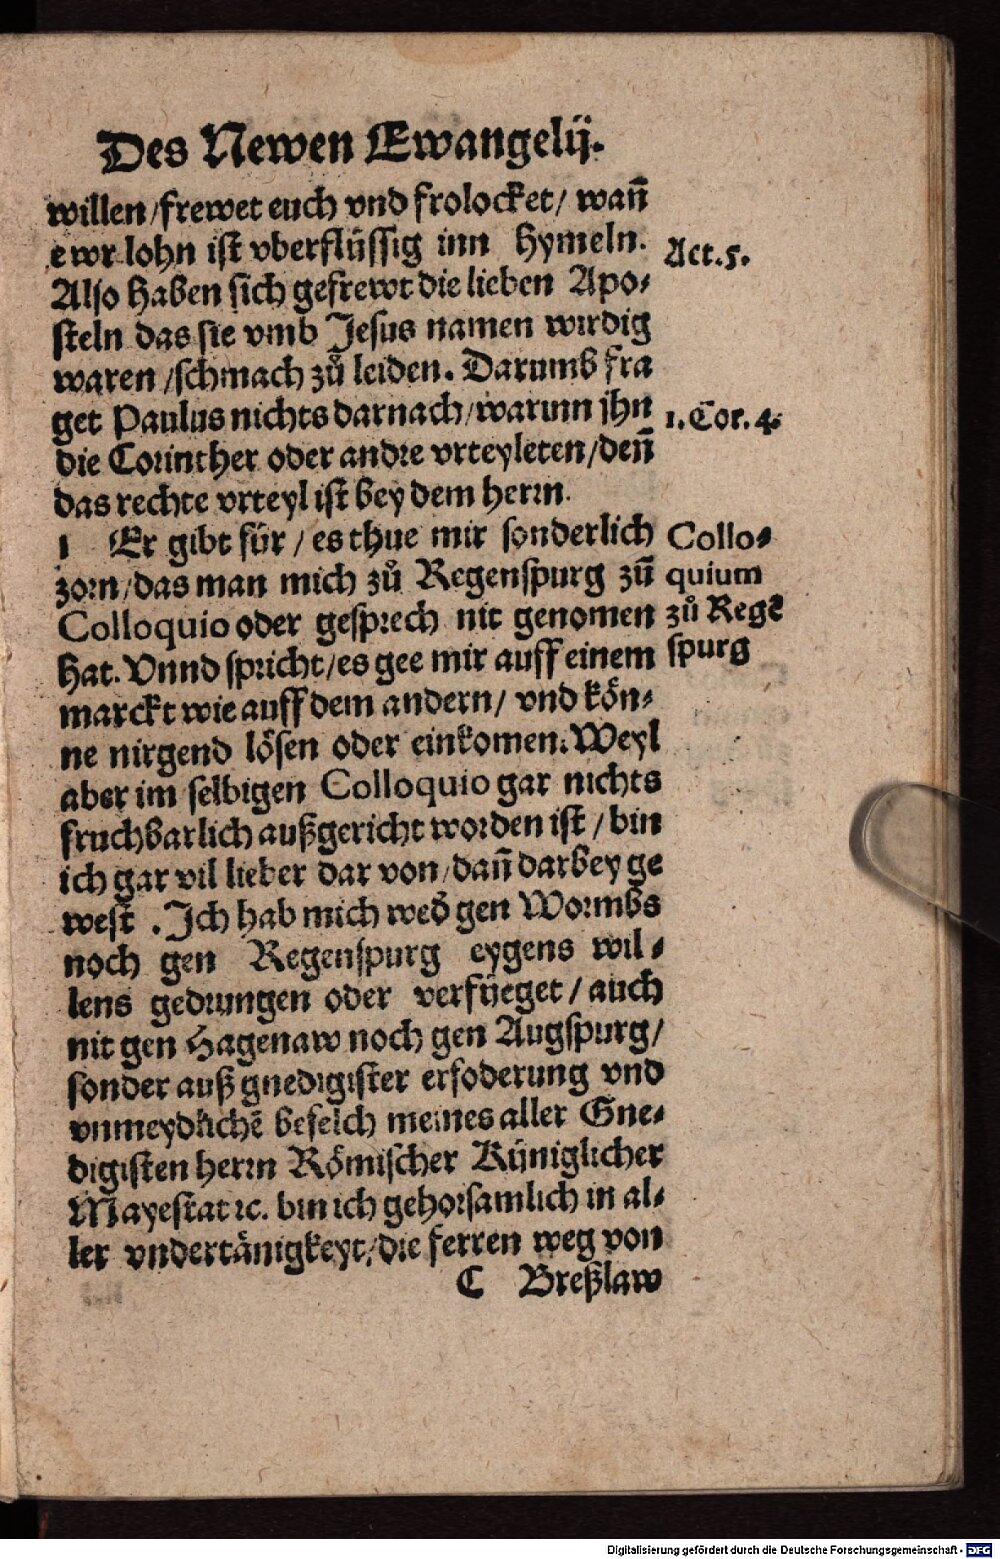 Des Newen Ewangelij.
willen/frewet euch vnd frolocket/ wañ
ewr lohn ist vberflüssig inn Hymeln.
Act.5.
Also haben sich gefrewt die lieben Apo-
steln das sie vmb Jesus namen wirdig
waren/schmach zů leiden. Darumb fra
get Paulus nichts darnach/warumm jhn
1.Cor.4.
die Corinther oder andre vrteyleten/deñ
das rechte vrteyl ist bey dem herrn.
1 Er gibt für/es thue mir sonderlich
zorn/das man mich zů Regenspurg zũ
Colloquio oder gesprech nit genomen
hat. Vnnd spricht/es gee mir auff einem
Collo-
quium
zů Regẽ
spurg
marckt wie auff dem andern/ vnd kön-
ne nirgend lösen oder einkomen. Weyl
aber im selbigen Colloquio gar nichts
fruchbarlich außgericht worden ist/ bin
ich gar vil lieber dar von/dañ darbey ge
west. Jch hab mich wed̃ gen Wormbs
noch gen Regenspurg eygens wil-
lens gedrungen oder verfüeget/ auch
nit gen Hagenaw noch gen Augspurg/
sonder auß gnedigister erfoderung vnd
vnmeydlichẽ befelch meines aller Gne-
digisten herrn Römischer Küniglicher
Mayestat ꝛc. bin ich gehorsamlich in al-
ler vndertänigkeyt/die ferren weg von
C Breßlaw
Digitalisierung gefördert durch die Deutsche Forschungsgemeinschaft - DFG